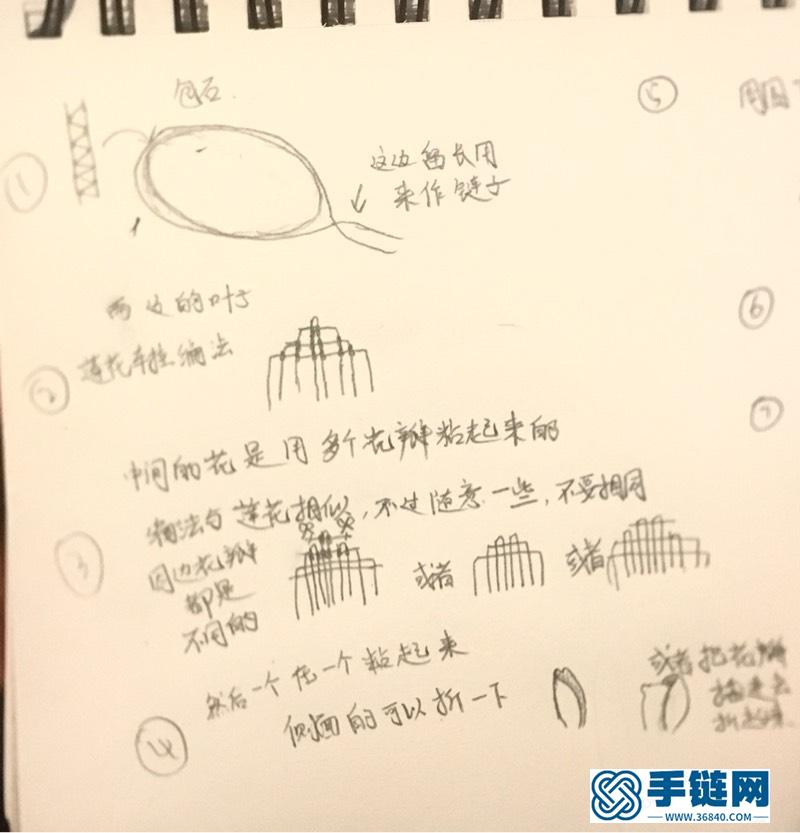 ①
包石
这边留长用
来作链子
②
两边的叶子
莲花车挂编法
中间的花是用多个花瓣粘起来的
③
编法与莲花相似,不过随意一些,不要相同
周边花瓣
都是
不同的
或者
或者
14
然后一个在一个粘起来
侧面的可以折一下
或者把花瓣
折起来
⑤
⑥
⑦
手链网
WWW.36840.COM